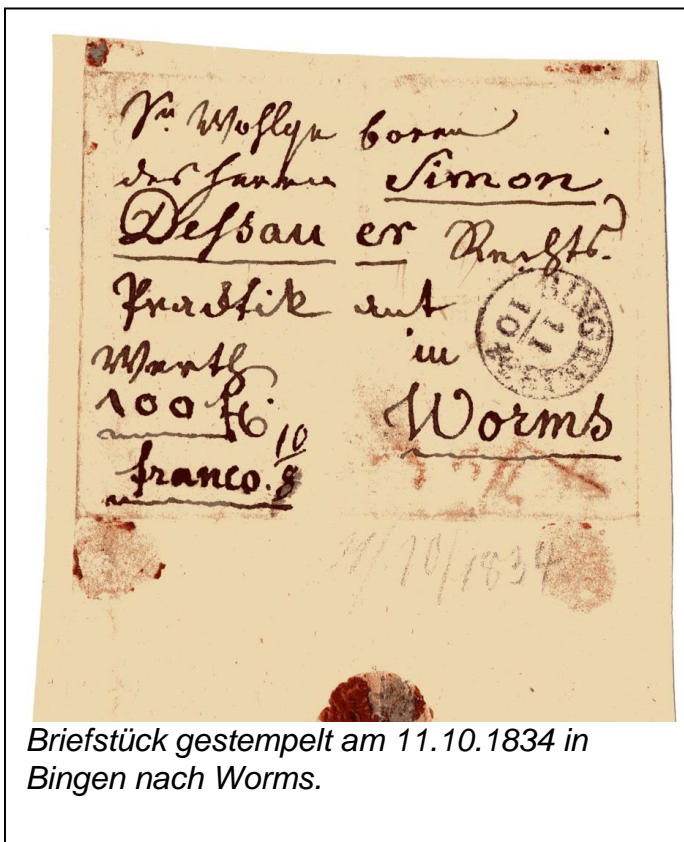 Sr. Wohlge boren
des Herren Simon
Dessau er Rechts-
Practik ant
Werth in
100 fl
Worms
franco. 10/8
BINGEN
11
10
11/10/1834
Briefstück gestempelt am 11.10.1834 in
Bingen nach Worms.